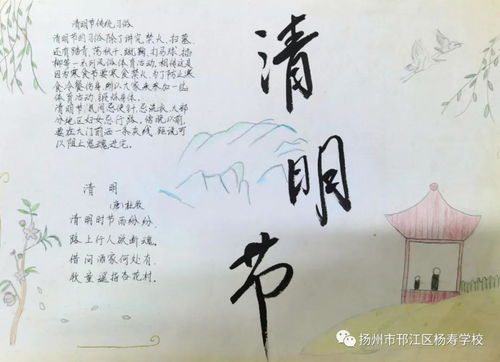 清明节传统习俗
清明节的习俗除了讲究禁火、扫墓
还有踏青、荡秋千、蹴鞠、打马球、插
柳等一系列风俗体育活动,相传这是
因为寒食节要寒食禁火,为了防止寒
食冷餐伤身,所以大家来参加一些
体育活动,锻炼身体。
清明节,民间忌使针,忌洗衣,大部
分地区妇女忌行路。傍晚以前,
要在大门前洒一条灰线,据说可
以阻止鬼魂进宅。
清明
(唐)杜牧
清明时节雨纷纷,
路上行人欲断魂。
借问酒家何处有,
牧童遥指杏花村。
清明节
扬州市邗江区杨寿学校